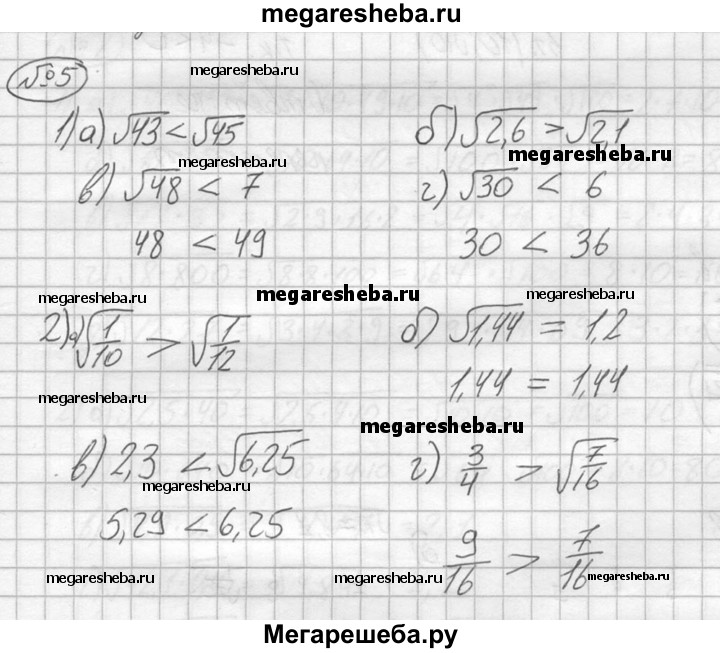 megaresheba.ru
№5
megaresheba.ru
1) а) √43 < √45 б) √2,6 > √2,1
megaresheba.ru megaresheba.ru
в) √48 < 7 г) √30 < 6
48 < 49 30 < 36
megaresheba.ru megaresheba.ru megaresheba.ru
2) а) √1/10 > √1/12 б) √1,44 = 1,2
1,44 = 1,44
megaresheba.ru
megaresheba.ru
в) 2,3 < √6,25 г) 3/4 > √7/16
megaresheba.ru
5,29 < 6,25 9/16 > 7/16
megaresheba.ru megaresheba.ru megaresheba.ru
Мегарешеба.ру